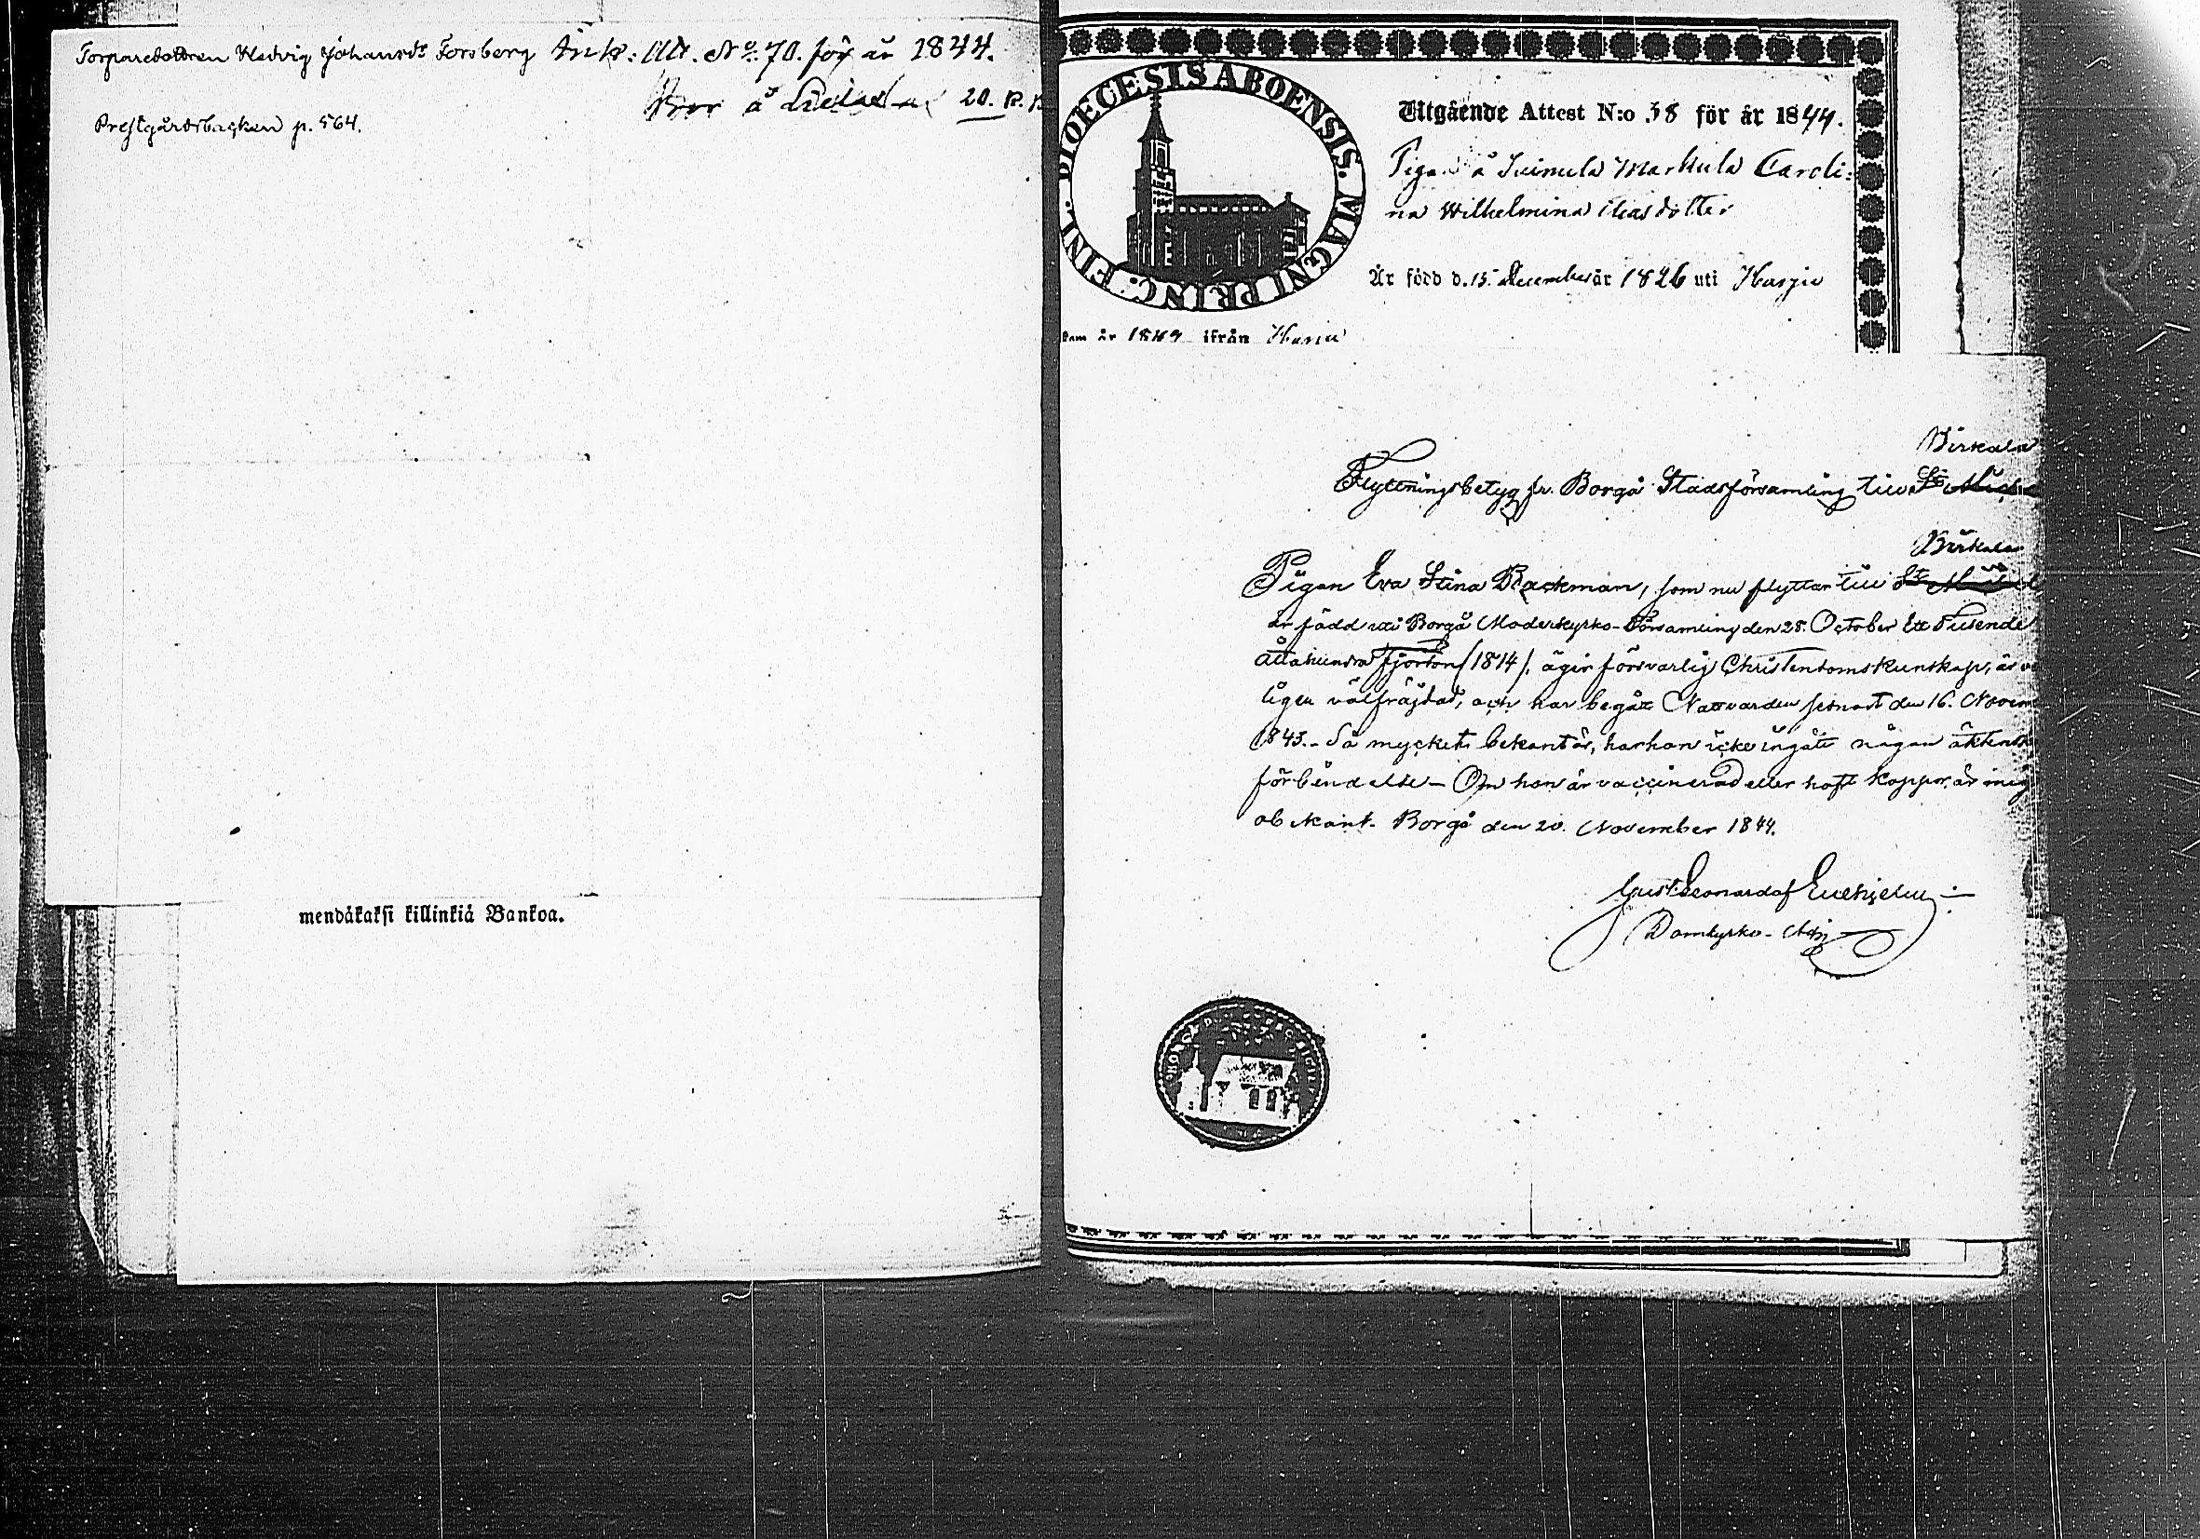 Torparedottren Hedvig Johansdr Forsberg Ank: Att. No. 70. för år 1844.
Bor å 20.
Prestgårdsbacken p. 564.
mendåkaksi killinkiä Bankoa.
DIOECESIS ABOENSIS. MAGNI PRINC. FINL.
Utgående Attest N:o 38 för år 1844.
Pigan å Markula Caroli:
na Wilhelmina Eliasdotter
Är född d. 15. December år 1826 uti Harju
kom år ifrån Harju
Birkala
Flyttningsbetyg fr. Borgå Stadsförsamling till St Mich
Birkala
Pigan Eva Stina Backman, som nu flyttar till St Mich
är född uti Borgå Moderkyrko-Församling den 28. October Ett Tusende
Åttahundra fjorton (1814), äger försvarlig Christendomskunskap, är
ligen välfräjdad, och har begått Nattvarden sednast den 16. Novem
1843. - Så mycket bekant är, har hon icke ingått någon äktensk
förbindelse - Om hon är vaccinerad eller haft koppor, är mig
obekant. Borgå den 20. November 1844.
Gust. Leonard af Enehjelm
Domkyrko- Adj.
BORGÅ